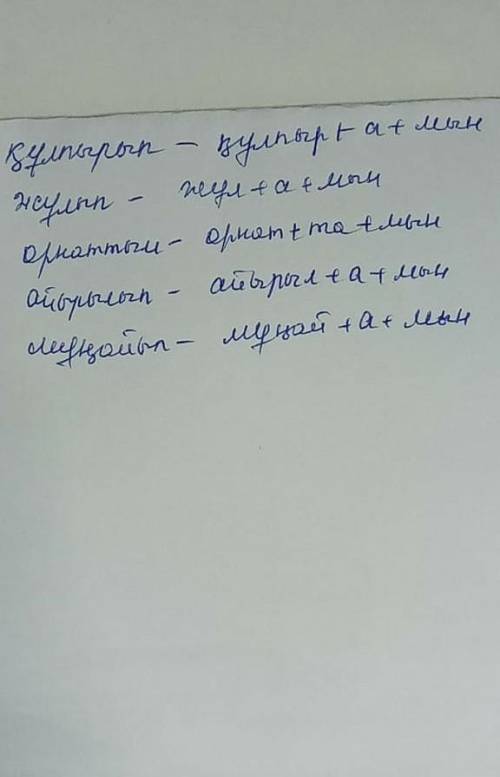 құлпырып – құлпыр + а + мын
жұлып – жұл + а + мын
орнаттым – орнат + та + мын
айырылып – айырыл + а + мын
мұңайып – мұңай + а + мын